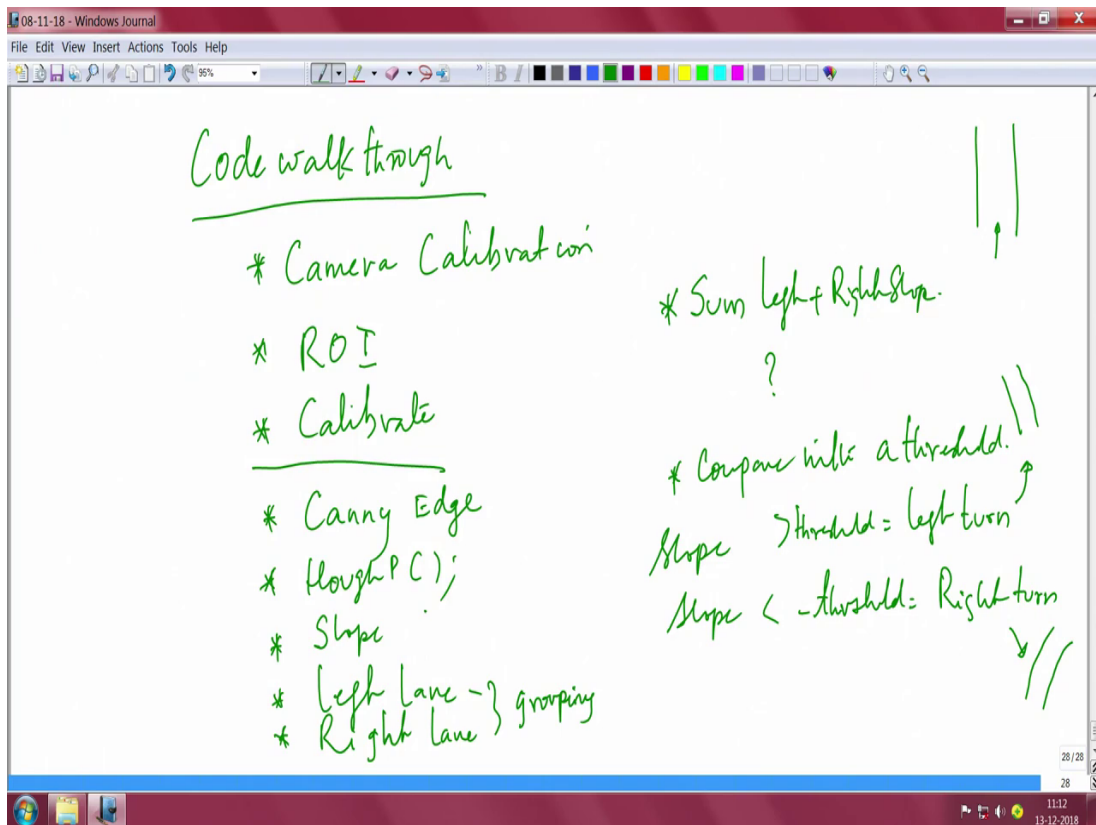 08-11-18 - Windows Journal
File Edit View Insert Actions Tools Help
95%
B I
Code walk through
* Camera Calibration
* ROI
* Calibrate
* Canny Edge
* HoughP();
* Slope
* Left Lane - } grouping
* Right Lane
* Sum left + Right Slope.
?
* Compare with a threshold.
Slope > threshold = left turn
Slope < -threshold = Right turn
28/28
28
11:12
13-12-2018